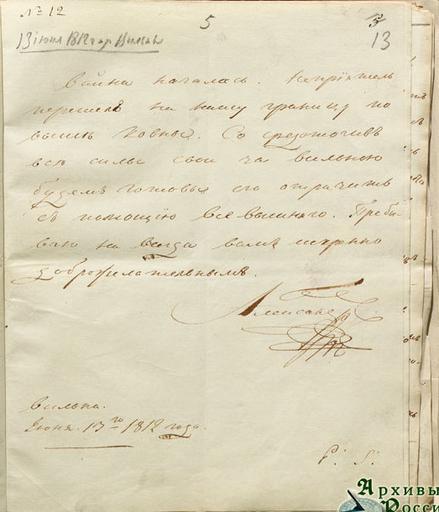 № 12
5
13
13 июня 1812 г. Вильна
Война началась. Непріятель
перешелъ на нашу границу по
выше Ковны. Со средоточивъ
всѣ силы свои за Вильною
будемъ готовы его отразить
съ помощію Всевышняго. Пребы
ваю на всегда вамъ искренно
доброжелательнымъ.
Александръ
Вильна.
Іюня 13го 1812 года.
P. S.
Архивы
России